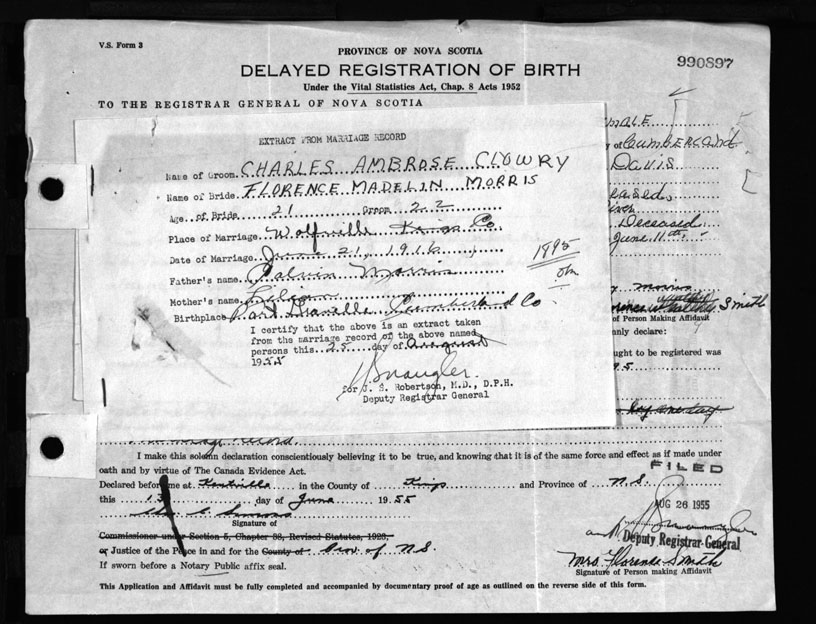 V.S. Form 3
PROVINCE OF NOVA SCOTIA
990897
DELAYED REGISTRATION OF BIRTH
Under the Vital Statistics Act, Chap. 8 Acts 1952
TO THE REGISTRAR GENERAL OF NOVA SCOTIA
EXTRACT FROM MARRIAGE RECORD
Name of Groom CHARLES AMBROSE CLOWRY
Name of Bride FLORENCE MADELIN MORRIS
Age of Bride 21 Groom 22
Place of Marriage Wolfville Kings Co
Date of Marriage June 21, 1916
1895
Father's name Calvin Morris
Mother's name Lilian
Birthplace Cumberland Co.
I certify that the above is an extract taken
from the marriage record of the above named
persons this 25 day of August
1955
for J. S. Robertson, M.D., D.P.H.
Deputy Registrar General
of Cumberland
DAVIS
Deceased
June 11th
Morris
Smith
of Person Making Affidavit
declare:
ught to be registered was
I make this solemn declaration conscientiously believing it to be true, and knowing that it is of the same force and effect as if made under
oath and by virtue of The Canada Evidence Act.
FILED
Declared before me at Kentville in the County of Kings and Province of N.S.
this 13 day of June 1955
AUG 26 1955
Signature of
Commissioner under Section 5, Chapter 38, Revised Statutes, 1923.
or Justice of the Peace in and for the County of Prov. of N.S.
Deputy Registrar-General
If sworn before a Notary Public affix seal.
Mrs. Florence Smith
Signature of Person making Affidavit
This Application and Affidavit must be fully completed and accompanied by documentary proof of age as outlined on the reverse side of this form.